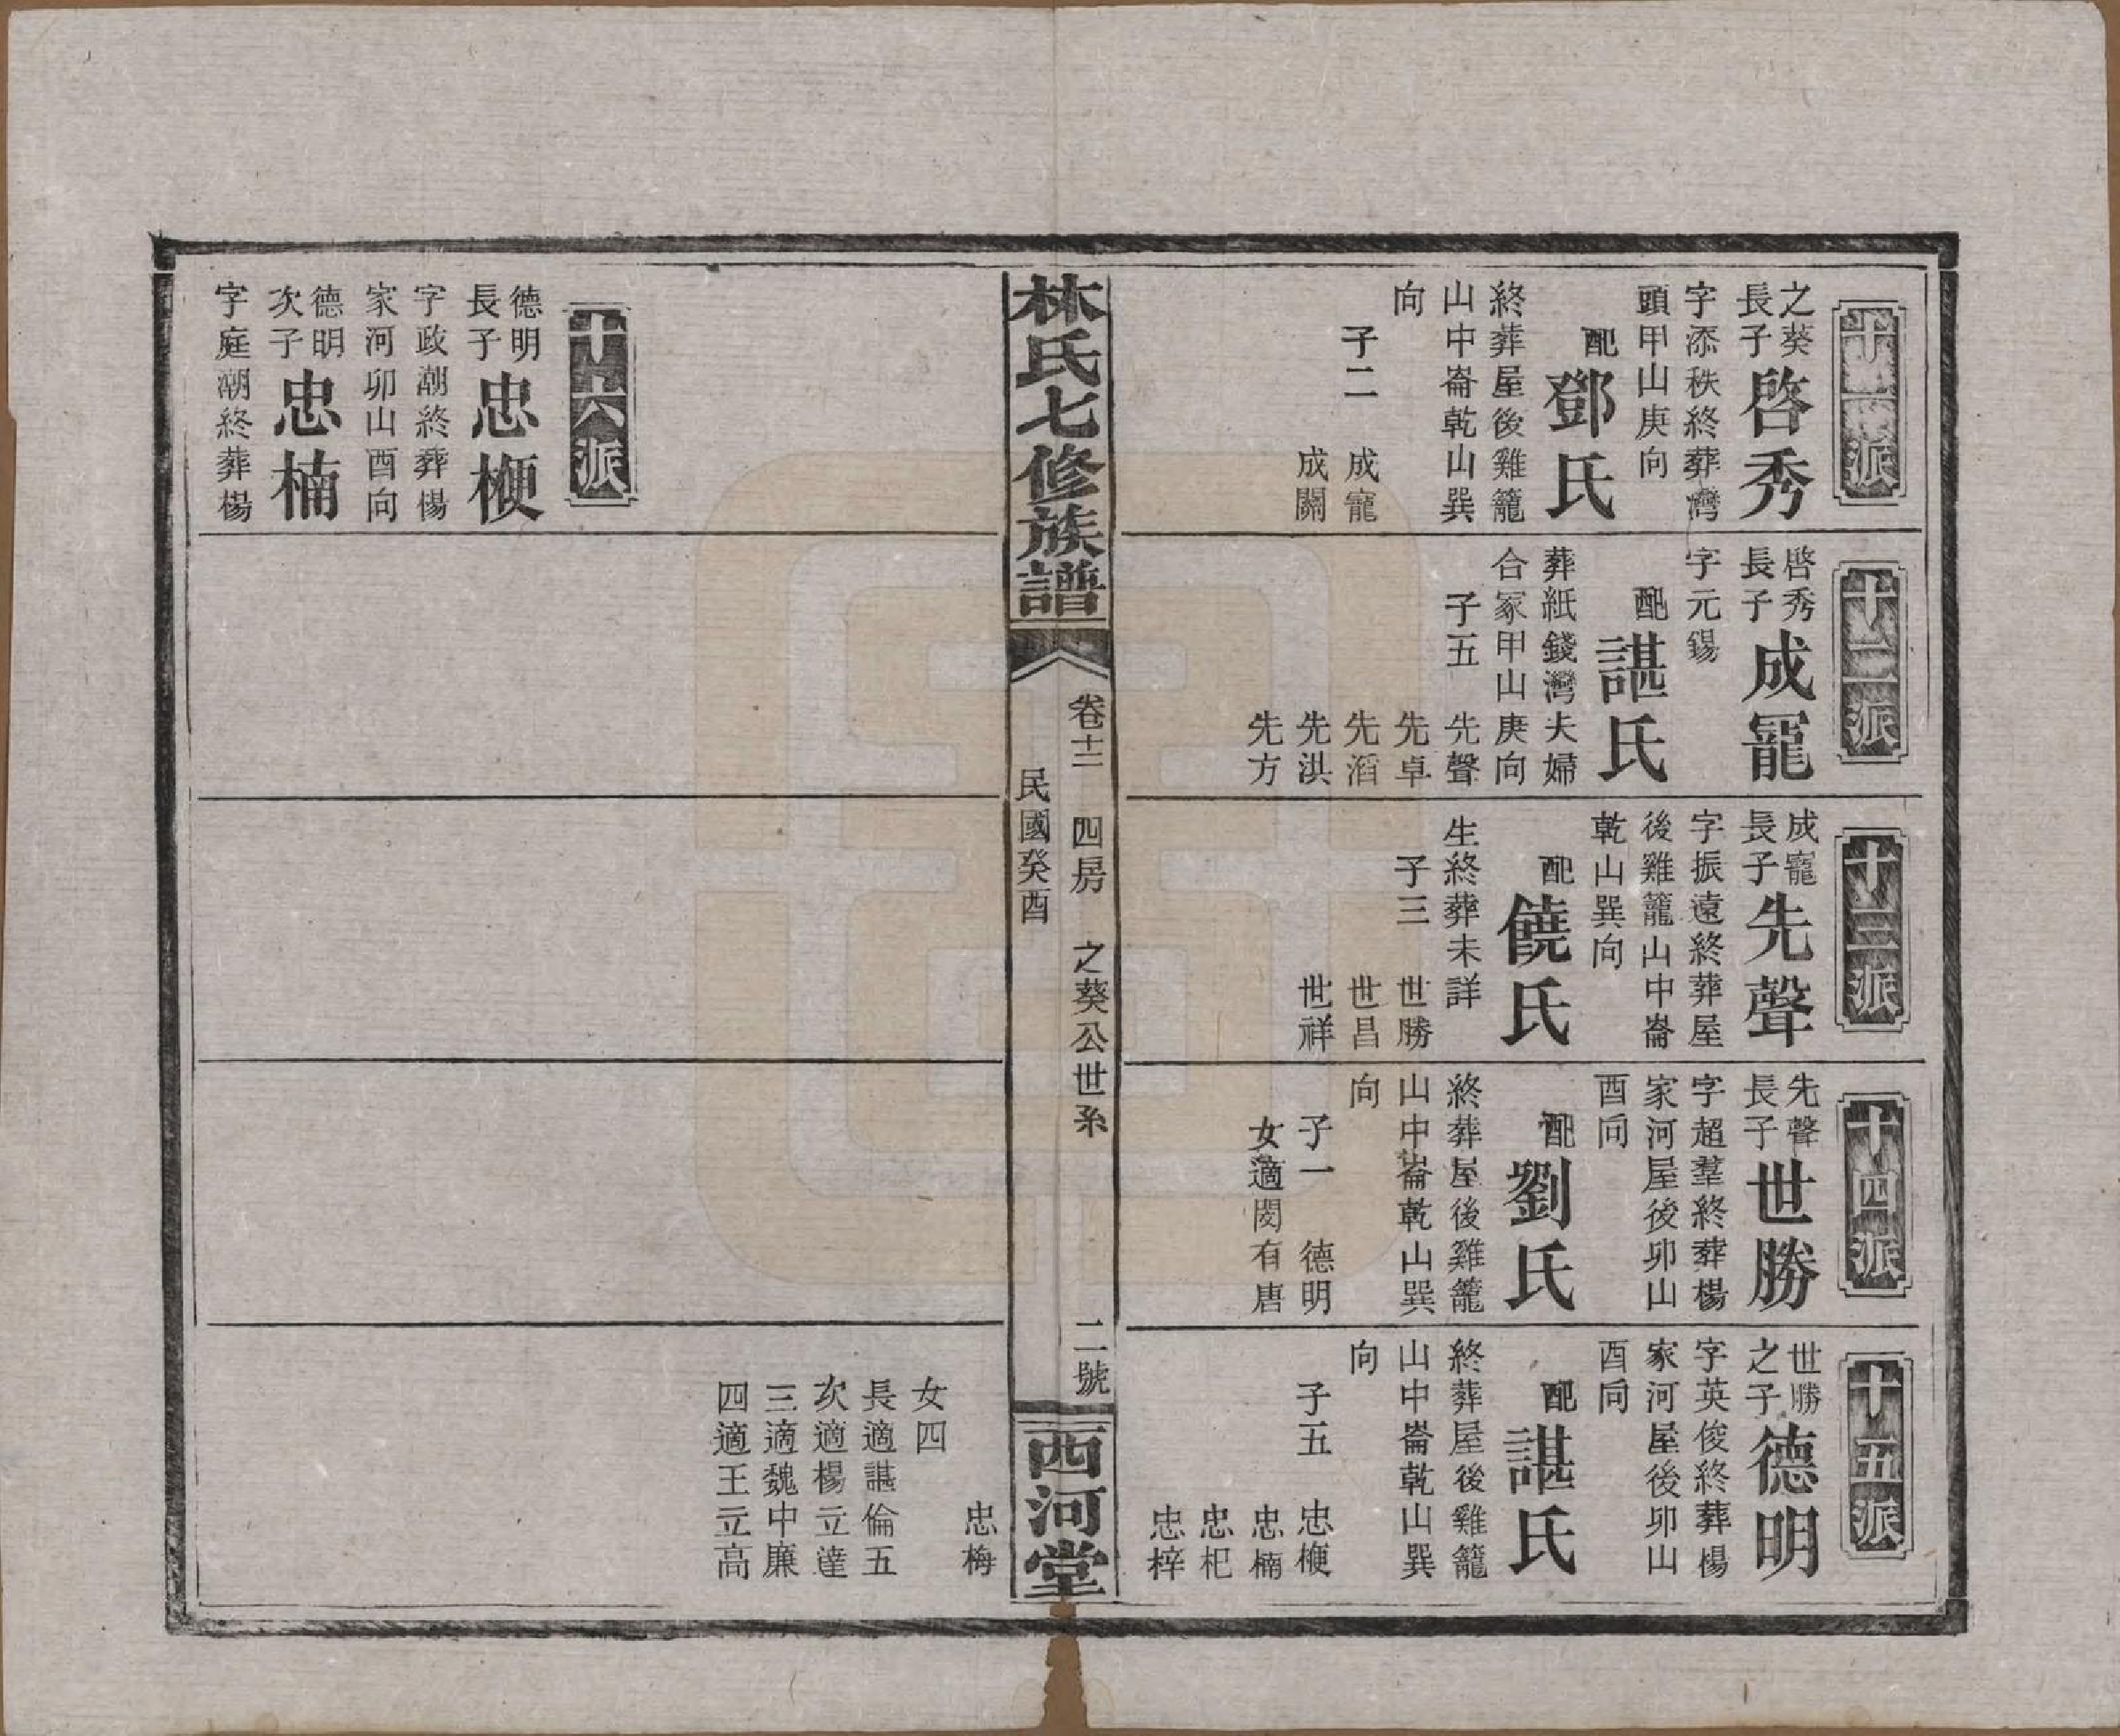 十一派
之葵
長子
啓秀
字添秩終葬灣
頭甲山庚向
配
鄧氏
終葬屋後雞籠
山中崙乾山巽
向
子二 成寵
成關
十二派
啓秀
長子
成寵
字元錫
配
諶氏
葬紙錢灣夫婦
合冢甲山庚向
子五 先聲
先卓
先滔
先洪
先方
十三派
成寵
長子
先聲
字振遠終葬屋
後雞籠山中崙
乾山巽向
配
饒氏
生終葬未詳
子三 世勝
世昌
世祥
十四派
先聲
長子
世勝
字超羣終葬楊
家河屋後卯山
酉向
配
劉氏
終葬屋後雞籠
山中崙乾山巽
向
子一 德明
女適閔有唐
十五派
世勝
之子
德明
字英俊終葬楊
家河屋後卯山
酉向
配
諶氏
終葬屋後雞籠
山中崙乾山巽
向
子五 忠楩
忠楠
忠杞
忠梓
林氏七修族譜
卷十二 四房 之葵公世系 二號
民國癸酉
西河堂
忠梅
女四
長適諶倫五
次適楊立達
三適魏中廉
四適王立高
十六派
德明
長子
忠楩
字政潮終葬楊
家河卯山酉向
德明
次子
忠楠
字庭潮終葬楊